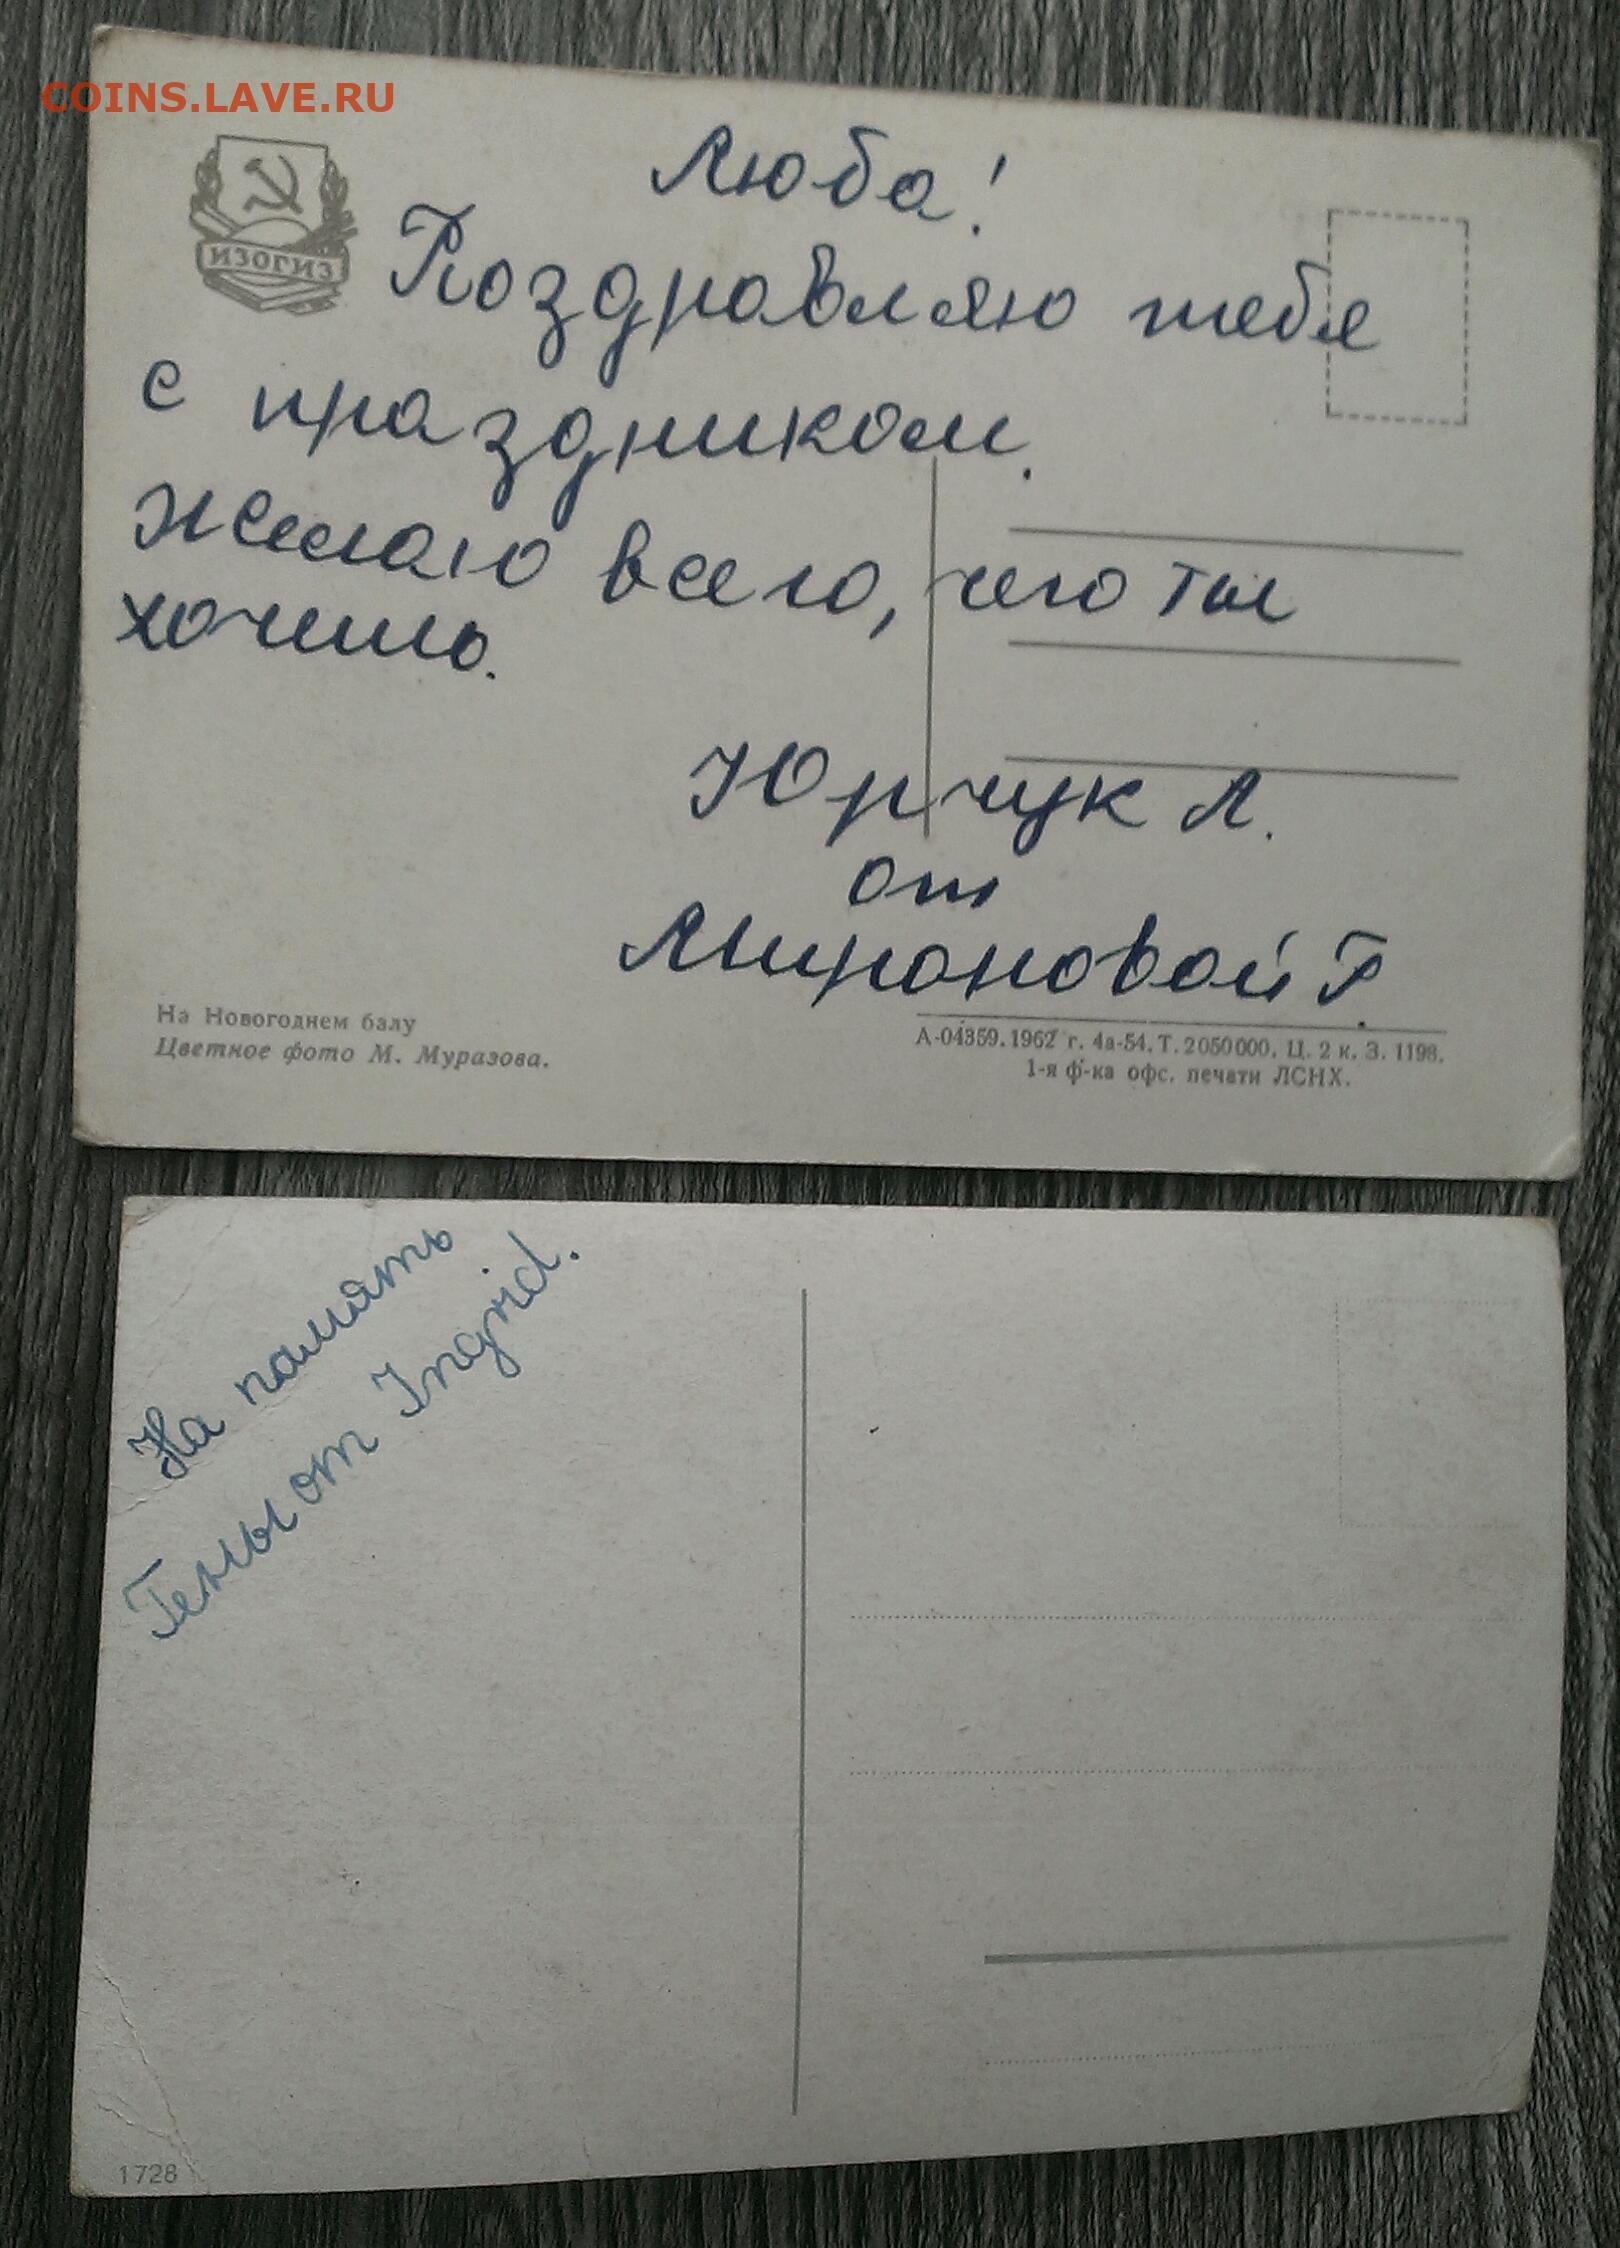 COINS.LAVE.RU
ИЗОГИЗ
Люба!
Поздравляю тебя
с праздником.
Желаю всего, чего ты
хочешь.
Юрчук Л.
от
Мироновой Г.
На Новогоднем балу
Цветное фото М. Муразова.
А-04359. 1962 г. 4а-54. Т. 2050000. Ц. 2 к. З. 1198.
1-я ф-ка офс. печати ЛСНХ.
На память
Гены от Ingrid.
1728